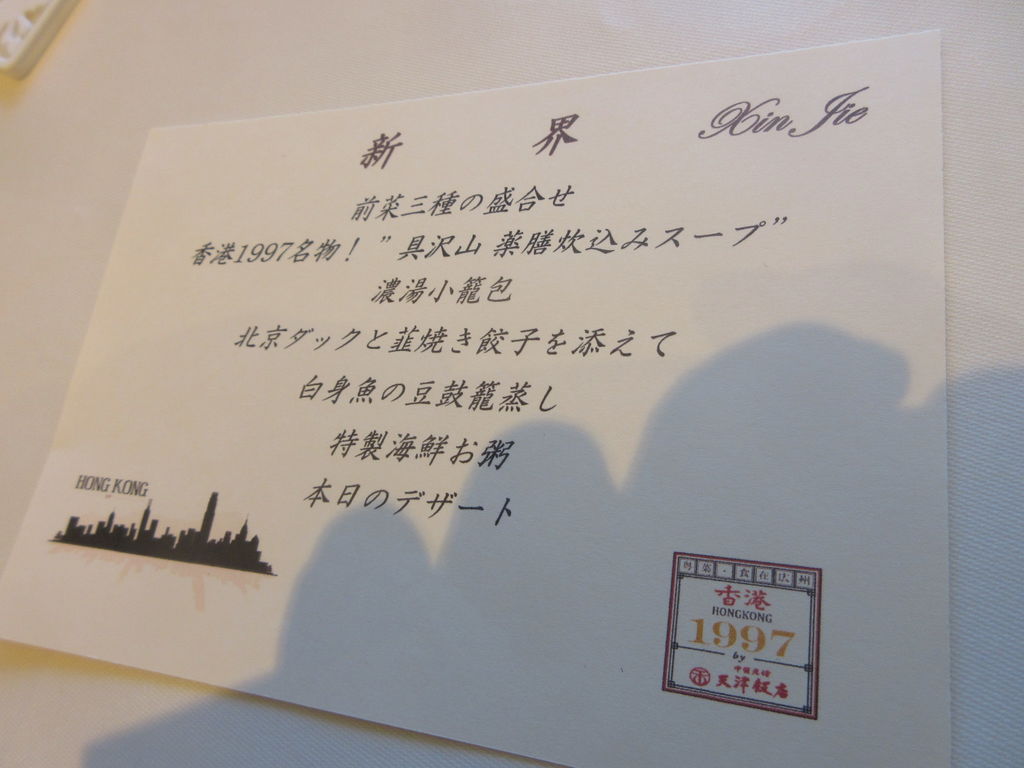 新 界 Xin Jie
前菜三種の盛合せ
香港1997名物！”具沢山 薬膳炊込みスープ”
濃湯小籠包
北京ダックと韮焼き餃子を添えて
白身魚の豆鼓籠蒸し
特製海鮮お粥
本日のデザート
HONG KONG
粤菜・食在広州
香港
HONGKONG
1997
by
天津飯店